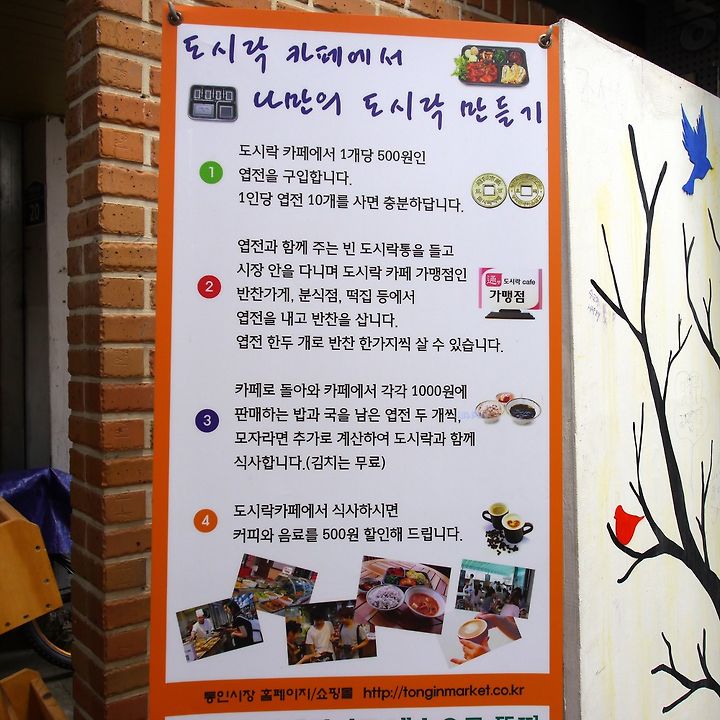 도시락 카페에서
나만의 도시락 만들기
1
도시락 카페에서 1개당 500원인
엽전을 구입합니다.
1인당 엽전 10개를 사면 충분하답니다.
2
엽전과 함께 주는 빈 도시락통을 들고
시장 안을 다니며 도시락 카페 가맹점인
반찬가게, 분식점, 떡집 등에서
엽전을 내고 반찬을 삽니다.
엽전 한두 개로 반찬 한가지씩 살 수 있습니다.
通 도시락 cafe
가맹점
3
카페로 돌아와 카페에서 각각 1000원에
판매하는 밥과 국을 남은 엽전 두 개씩,
모자라면 추가로 계산하여 도시락과 함께
식사합니다.(김치는 무료)
4
도시락카페에서 식사하시면
커피와 음료를 500원 할인해 드립니다.
통인시장 홈페이지/쇼핑몰 http://tonginmarket.co.kr
20